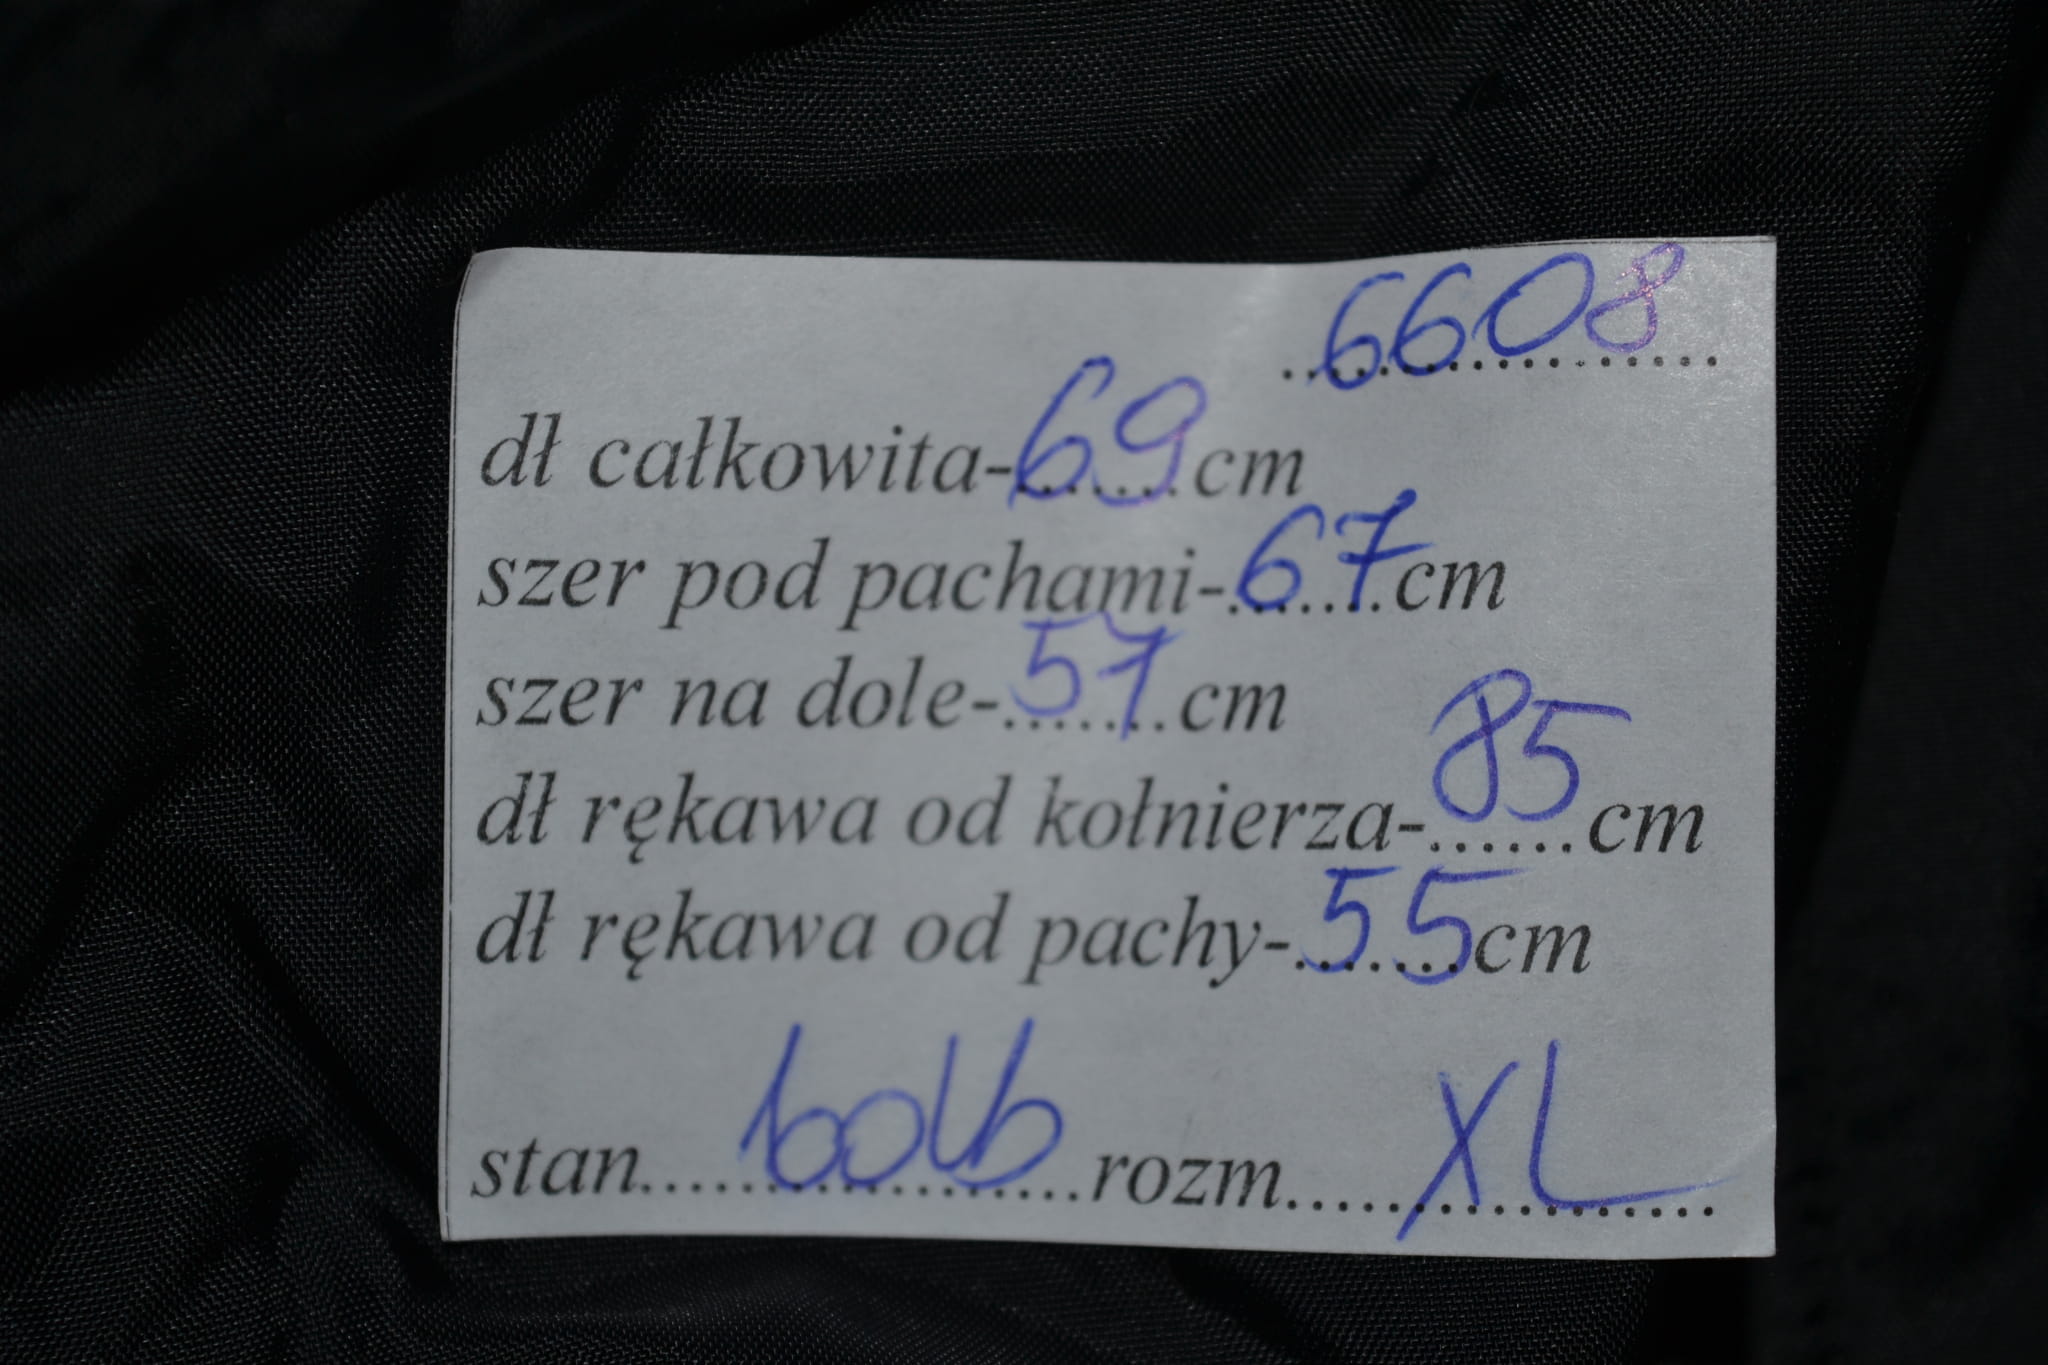 6608
dł całkowita-69cm
szer pod pachami-67cm
szer na dole-57cm
dł rękawa od kołnierza-85cm
dł rękawa od pachy-55cm
stan.......rozm.....XL